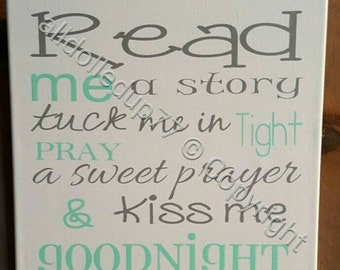 Read
me a story
tuck me in Tight
PRAY
a sweet prayer
& kiss me
GOODNIGHT
alldolledupnz © Copyright